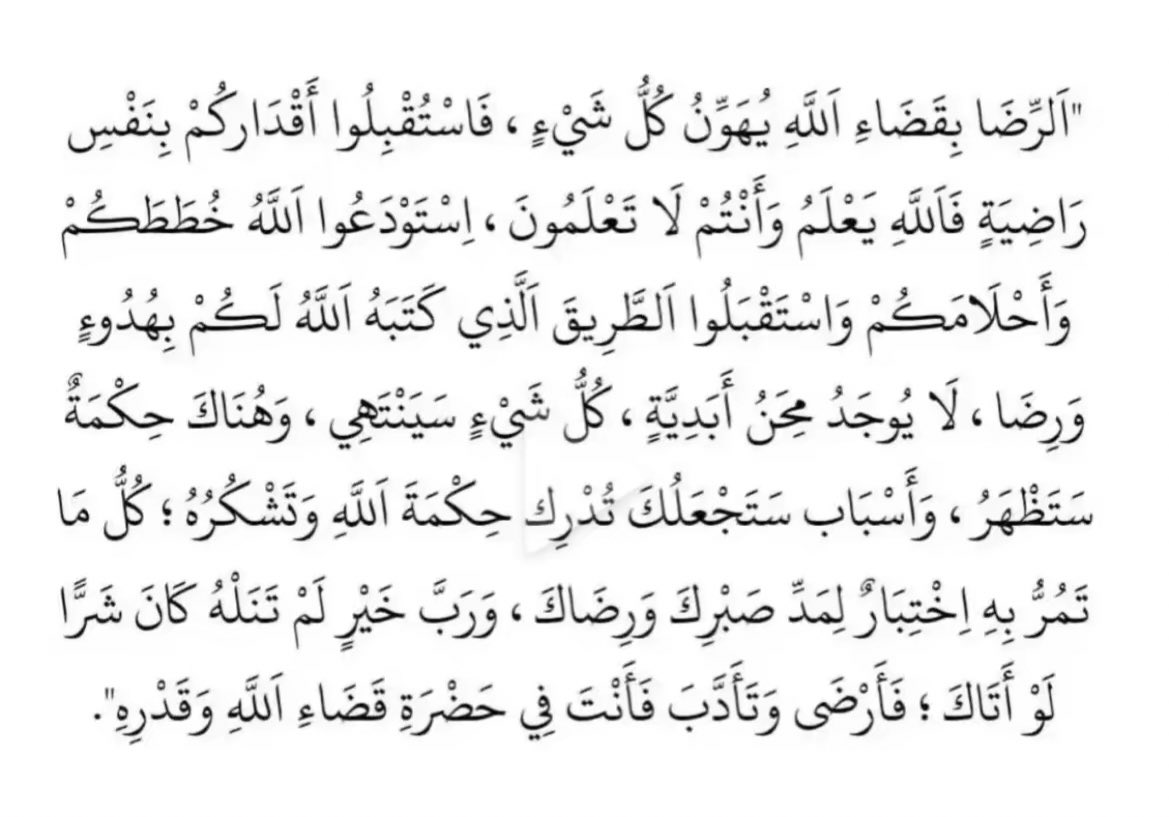 "اَلرِّضَا بِقَضَاءِ اَللَّهِ يُهَوِّنُ كُلُّ شَيْءٍ ، فَاسْتُقْبِلُوا أَقْدَاركُمْ بِنَفْسِ
رَاضِيَةٍ فَاَللَّهِ يَعْلَمُ وَأَنْتُمْ لَا تَعْلَمُونَ ، اِسْتَوْدَعُوا اَللَّهُ خُطَطَكُمْ
وَأَحْلَامَكُمْ وَاسْتَقْبَلُوا اَلطَّرِيقَ اَلَّذِي كَتَبَهُ اَللَّهُ لَكُمْ بِهُدُوءٍ
وَرِضَا ، لَا يُوجَدُ مِحَنُ أَبَدِيَّةٍ ، كُلُّ شَيْءٍ سَيَنْتَهِي ، وَهُنَاكَ حِكْمَةٌ
سَتَظْهَرُ ، وَأَسْبَاب سَتَجْعَلُكَ تُدْرِك حِكْمَةَ اَللَّهِ وَتَشْكُرُهُ ؛ كُلُّ مَا
تَمُرُّ بِهِ اِخْتِبَارٌ لِمَدِّ صَبْرِكَ وَرِضَاكَ ، وَرَبَّ خَيْرٍ لَمْ تَنَلْهُ كَانَ شَرًّا
لَوْ أَتَاكَ ؛ فَأَرْضَى وَتَأَدَّبَ فَأَنْتَ فِي حَضْرَةِ قَضَاءِ اَللَّهِ وَقَدْرِهِ".